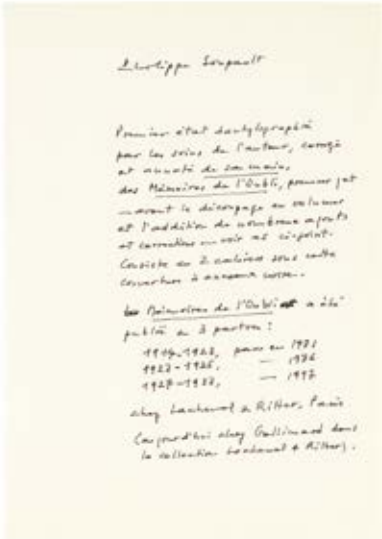 Philippe Soupault
Premier état dactylographié
par les soins de l'auteur, corrigé
et annoté de sa main,
des Mémoires de l'Oubli, premier jet
— avant le découpage en volumes
et l'addition de nombreux ajouts
et corrections — voir ms ci-joint.
Consiste en 2 cahiers sous cette
couverture à anneaux
Mémoires de l'Oubli a été
publié en 3 parties :
1914-1923, paru en 1981
1923-1926, — 1986
1927-1933, — 1997
chez Lachenal & Ritter, Paris
(aujourd'hui chez Gallimard dans
la collection Lachenal & Ritter).